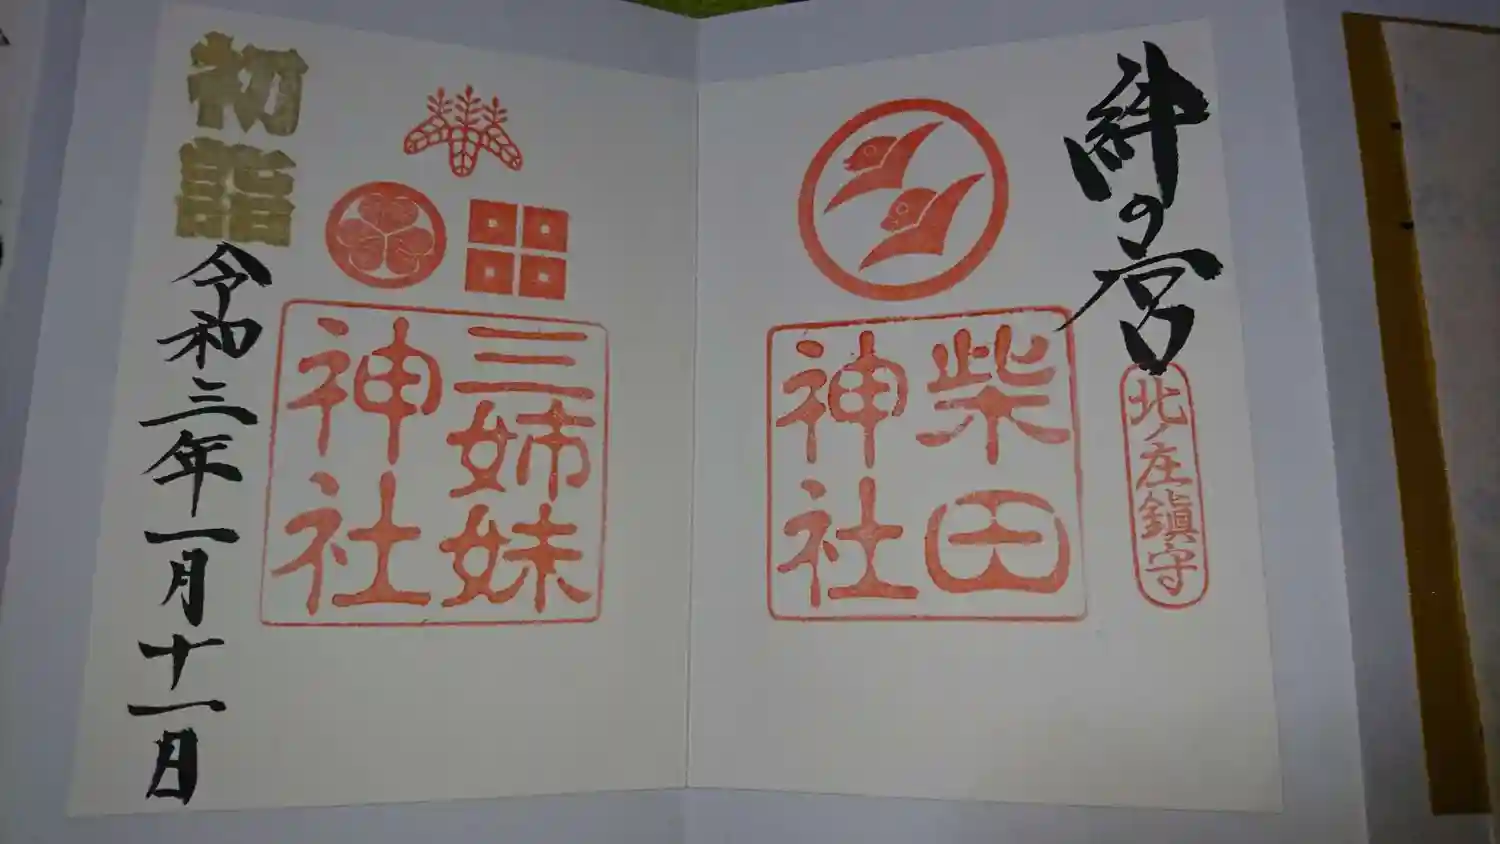 絆の宮
北ノ庄鎮守
柴田
神社
三姉妹
神社
初詣
令和三年一月十一日